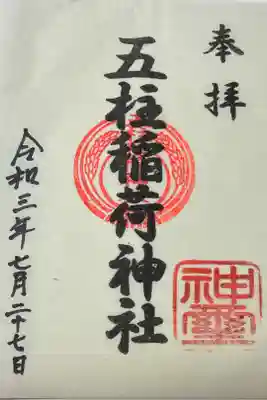 奉拝
五柱稲荷神社
令和三年七月二十七日
神璽